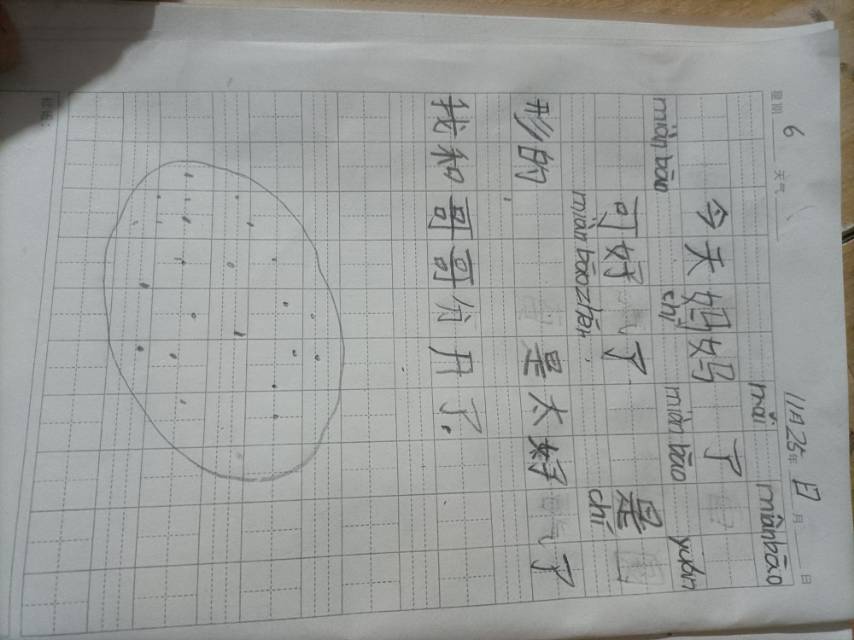 星期 6 天气 11月25年 日 月 日
mǎi miànbāo
今天妈妈 了
miàn bāo chī miàn bāo yuán
可好 了 是
miàn bāo zhēn chī
形的 是太好 了
我和哥哥分开了。